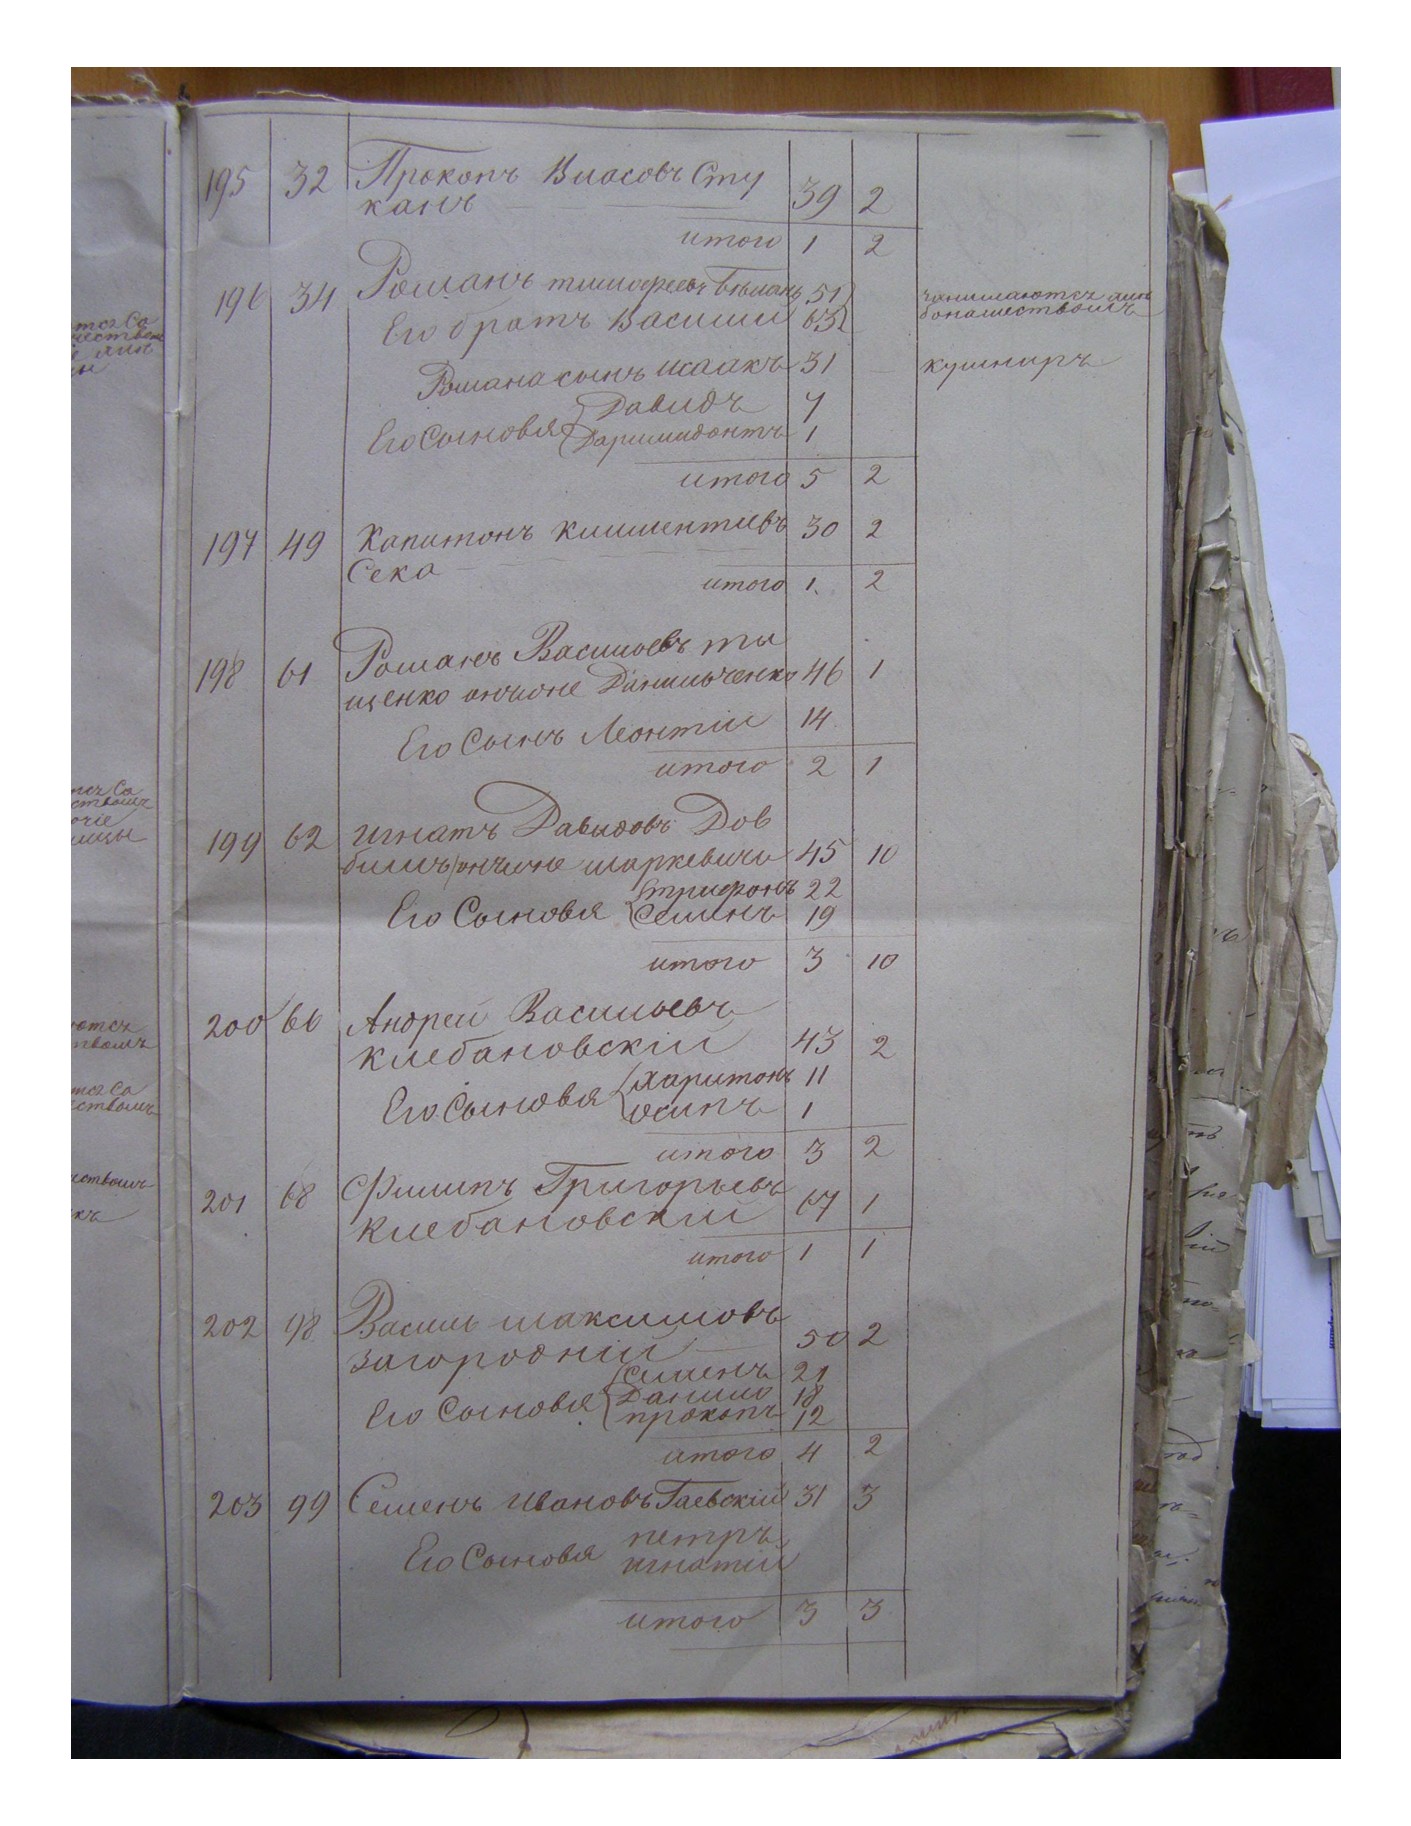 195 32 Прокопъ Власовъ Сту
канъ 39 2
итого 1 2
196 34 Романъ тимофеевъ Бѣланъ 51
Его братъ Василий 63
занимаются
Романа сынъ исаакъ 31 кушниръ
Его Сыновья Давидъ 7
Даримидонтъ 1
итого 5 2
197 49 Капитонъ климентиевъ 30 2
Сека
итого 1 2
198 61 Романъ Васильевъ ти
щенко онъ же Данильченко 46 1
Его Сынъ Леонтий 14
итого 2 1
199 62 игнатъ Давыдовъ Дов
билъ онъ же маркевичъ 45 10
Его Сыновья трифонъ 22
Семенъ 19
итого 3 10
200 66 Андрей Васильевъ
клебановский 43 2
Его Сыновья Харитонъ 11
осипъ 1
итого 3 2
201 68 Филипъ Григорьевъ
клебановский 67 1
итого 1 1
202 98 Василь максимовъ
загородний 50 2
Его Сыновья Семенъ 21
Данило 18
прокопъ 12
итого 4 2
203 99 Семенъ ивановъ Гаевский 31 3
Его Сыновья петръ
игнатий
итого 3 3